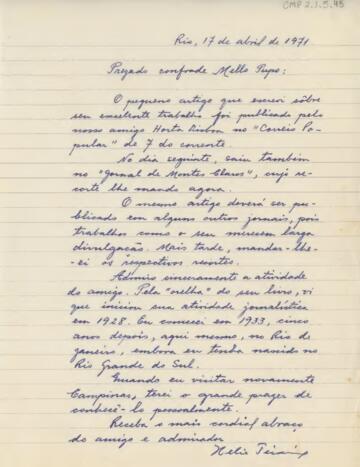 CMP 2.1.5.45
Rio, 17 de abril de 1971
Prezado confrade Mello Pupo:
O pequeno artigo que escrevi sôbre
seu excelente trabalho foi publicado pelo
nosso amigo Horta Lisboa no "Correio Po-
pular" de 7 do corrente.
No dia seguinte, saiu também
no "Jornal de Montes Claros", cujo re-
corte lhe mando agora.
O mesmo artigo deverá ser pu-
blicado em alguns outros jornais, pois
trabalhos como o seu merecem larga
divulgação. Mais tarde, mandar-lhe-
-ei os respectivos recortes.
Admiro sinceramente a atividade
do amigo. Pela "orelha" do seu livro, vi
que iniciou sua atividade jornalística
em 1928. Eu comecei em 1933, cinco
anos depois, aqui mesmo, no Rio de
Janeiro, embora eu tenha nascido no
Rio Grande do Sul.
Quando eu visitar novamente
Campinas, terei o grande prazer de
conhecê-lo pessoalmente.
Receba o mais cordial abraço
do amigo e admirador